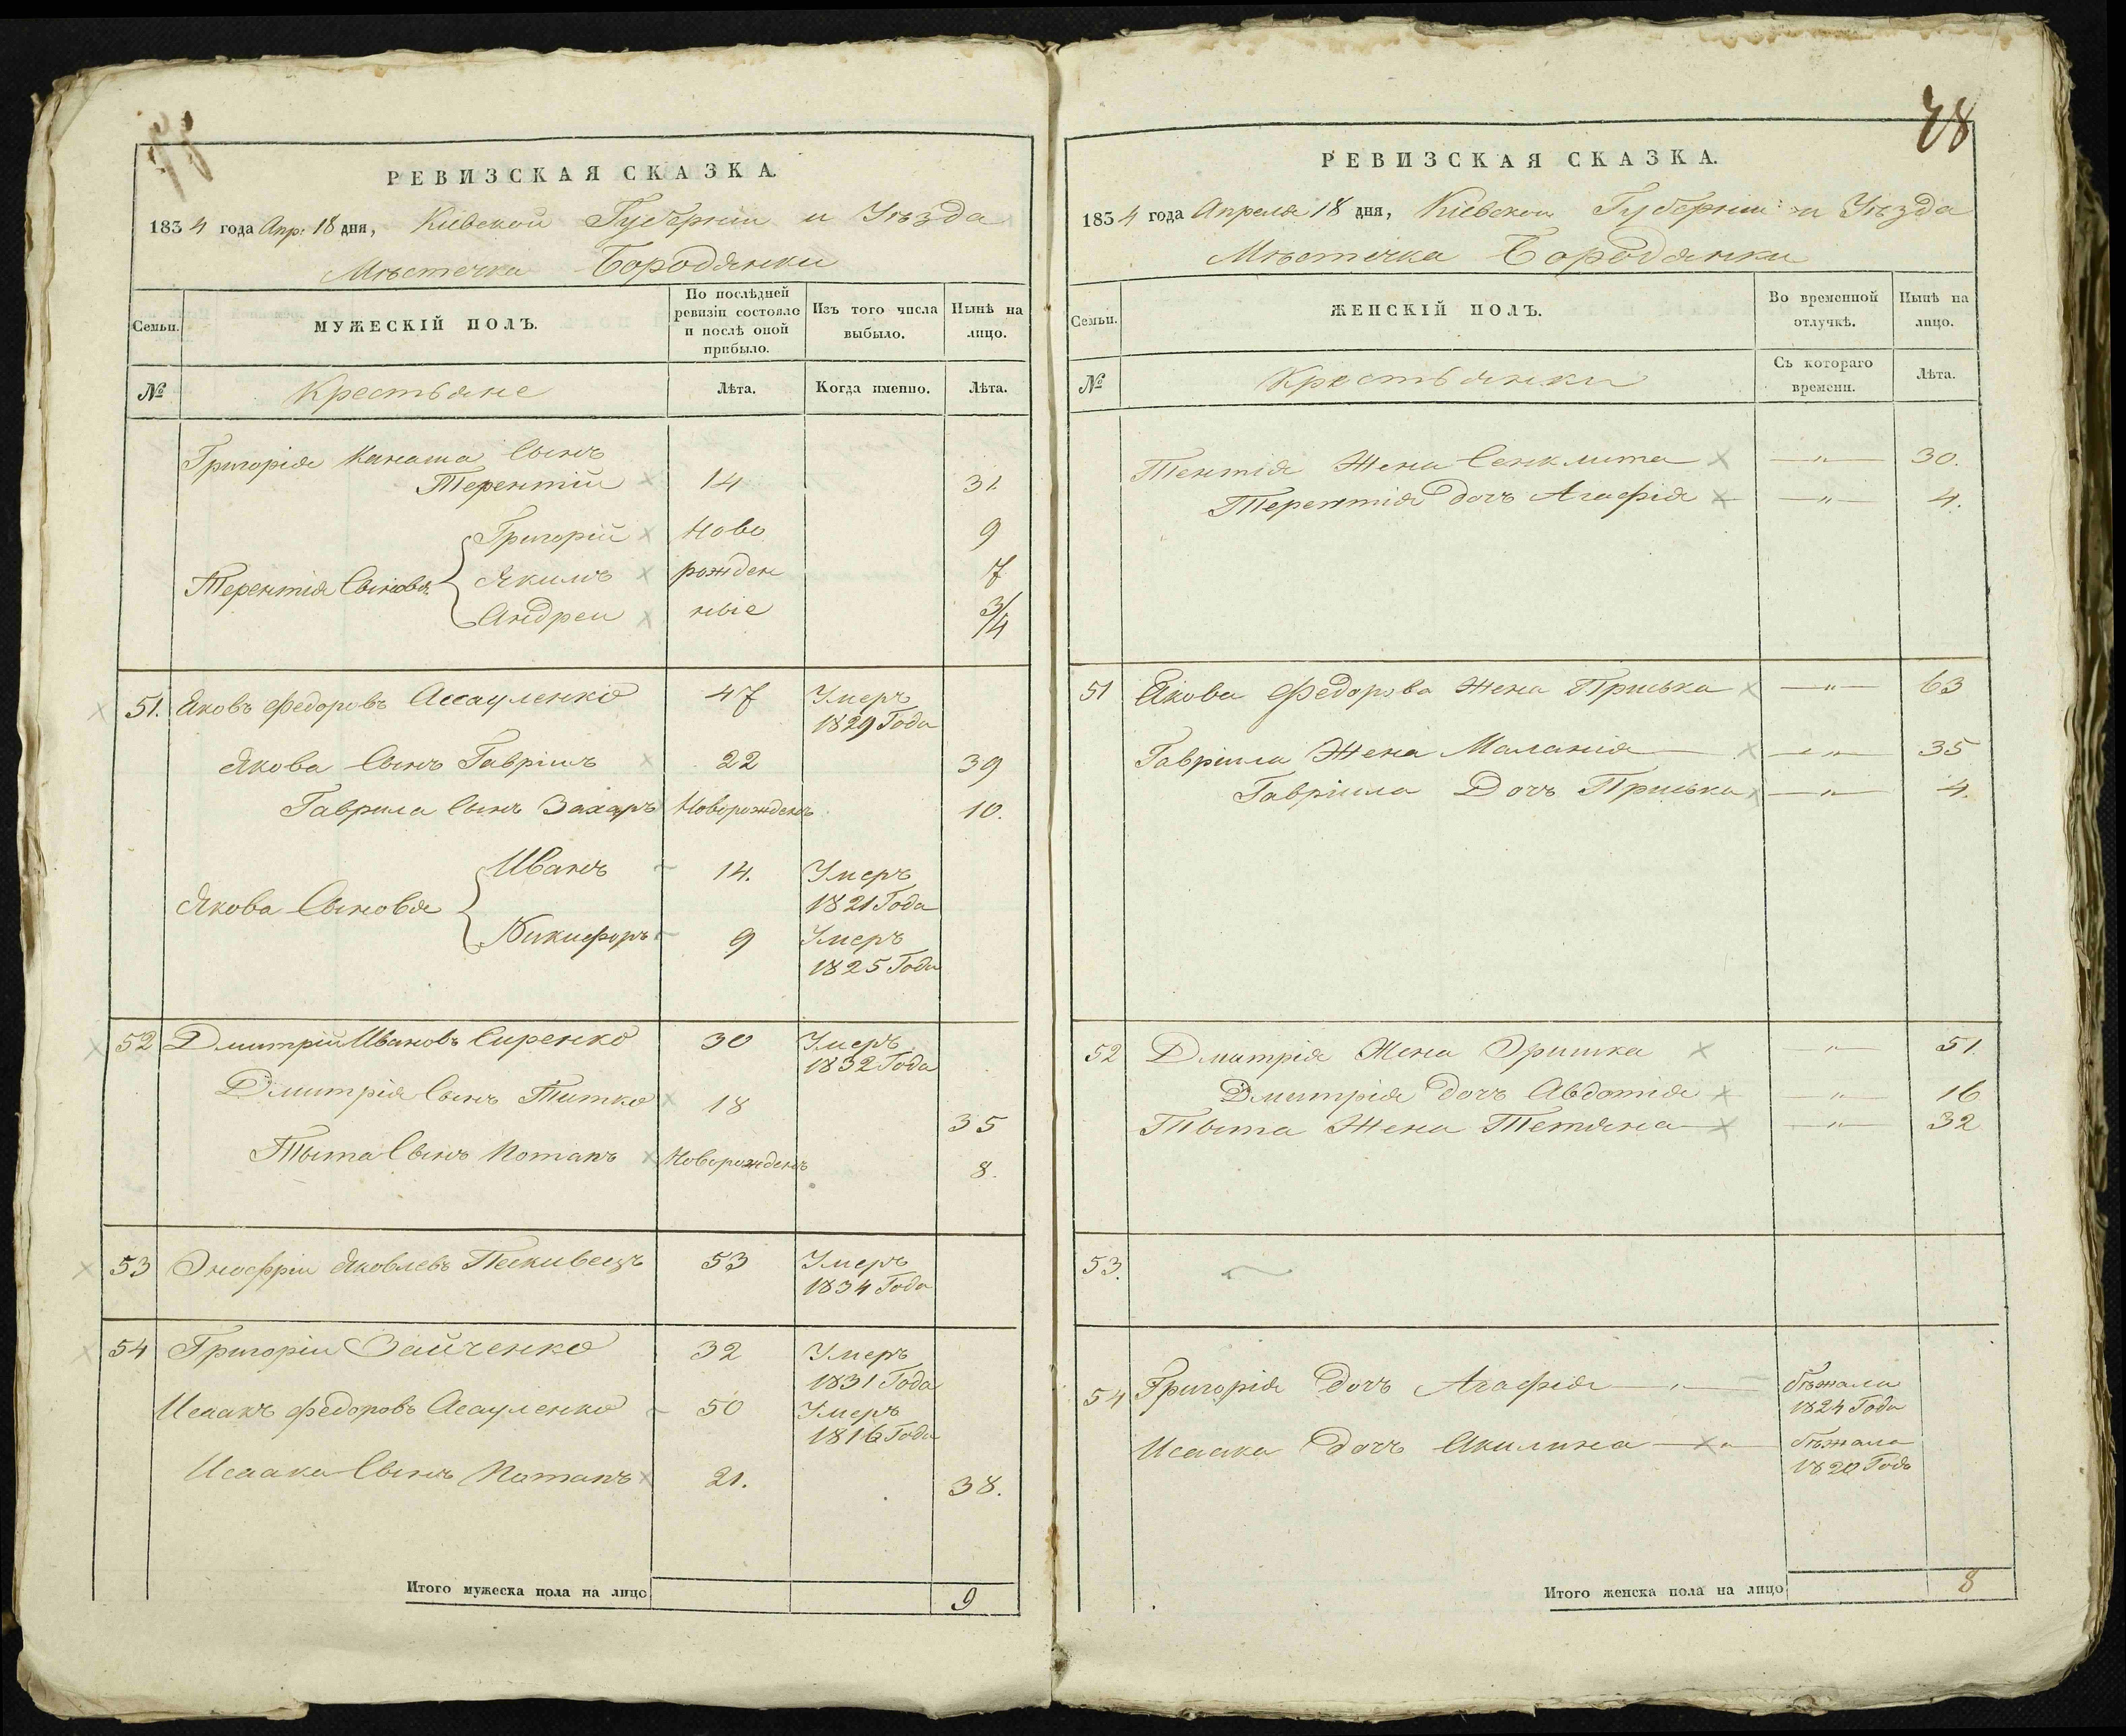 РЕВИЗСКАЯ СКАЗКА.
1834 года Апр: 18 дня, Кіевской Губерніи и Уѣзда
Мѣстечка Бородянки
Семьи.
МУЖЕСКІЙ ПОЛЪ.
По послѣдней ревизіи состояло и послѣ оной прибыло.
Изъ того числа выбыло.
Нынѣ на лицо.
№
Крестьяне
Лѣта.
Когда именно.
Лѣта.
Григорія Канаша Сынъ
Терентій 14 31.
Григорій Ново 9
Терентія Сыновя Якимъ рожден 7
Андреи ные 3/4
51. Яковъ Федоровъ Ассауленко 47 Умеръ
1829 Года
Якова Сынъ Гавріилъ 22 39
Гаврила Сынъ Захаръ Новорожденъ 10.
Иванъ 14. Умеръ
1821 Года
Якова Сыновя
Никифоръ 9 Умеръ
1825 Года
52 Дмитрій Ивановъ Сиренко 30 Умеръ
1832 Года
Дмитрія Сынъ Титко 18 35
Тыта Сынъ Потапъ Новорожденъ 8.
53 Онофріи Яковлевъ Пескивецъ 53 Умеръ
1834 Года
54 Григоріи Зайченко 32 Умеръ
1831 Года
Исаакъ Федоровъ Асауленко 50 Умеръ
1816 Года
Исаака Сынъ Потапъ 21. 38.
Итого мужеска пола на лицо 9
28
РЕВИЗСКАЯ СКАЗКА.
1834 года Апреля 18 дня, Кіевской Губерніи и Уѣзда
Мѣстечка Бородянки
Семьи.
ЖЕНСКІЙ ПОЛЪ.
Во временной отлучкѣ.
Нынѣ на лицо.
№
Крестьянки
Съ котораго времени.
Лѣта.
Тентія Жена Сенклита — " — 30.
Терентія Дочъ Агафія — " — 4.
51 Якова Федорова Жена Приська — " — 63
Гавріила Жена Маланія — " — 35
Гавріила Дочъ Приська — " — 4.
52 Дмитрія Жена Оришка — " — 51.
Дмитрія Дочъ Авдотія — " — 16
Тыта Жена Тетяна — " — 32
53.
54 Григорія Дочъ Агафія — " — бѣжала
1824 Года
Исаака Дочъ Акилина — " — бѣжала
1820 Года
Итого женска пола на лицо 8